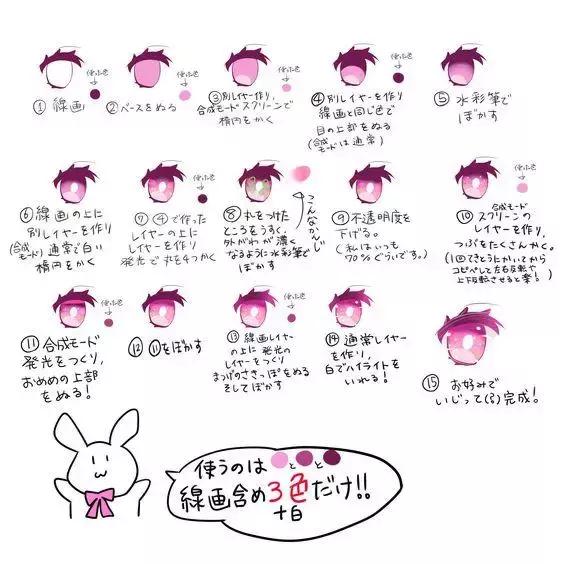 使ふ色
① 線画
使ふ色
② ベースをぬる
使ふ色
③ 別レイヤー作り、
合成モードスクリーンで
楕円をかく
使ふ色
④ 別レイヤーを作り
線画と同じ色で
目の上部をぬる
(合成モードは通常)
⑤ 水彩筆で
ぼかす
⑥ 線画の上に
別レイヤーを作り
(合成モード)通常で白い
楕円をかく
使ふ色
⑦ ④で作った
レイヤーの上に
レイヤーを作り
発光で丸を4つかく
⑧ 丸をつけた
ところをうすく、
外がわが濃く
なるように水彩筆で
ぼかす
こんなかんじ
⑨ 不透明度を
下げる。
(私はいつも
70%ぐらいです。)
使ふ色
⑩ 合成モード
スクリーンの
レイヤーを作り、
つぶをたくさんかく。
(1回てきとうにかいてから
コピペして左右反転や
上下反転させると楽!)
使ふ色
⑪ 合成モード
発光をつくり、
おめめの上部
をぬる!
⑫ ⑪をぼかす
使ふ色
⑬ 線画レイヤー
の上に発光の
レイヤーをつくり
まつげのさきっぽをぬる
そしてぼかす
⑭ 通常レイヤー
を作り、
白でハイライトを
いれる!
⑮ お好みで
いじって(ろ)完成!
使うのは と と
線画含め3色だけ!!
+白